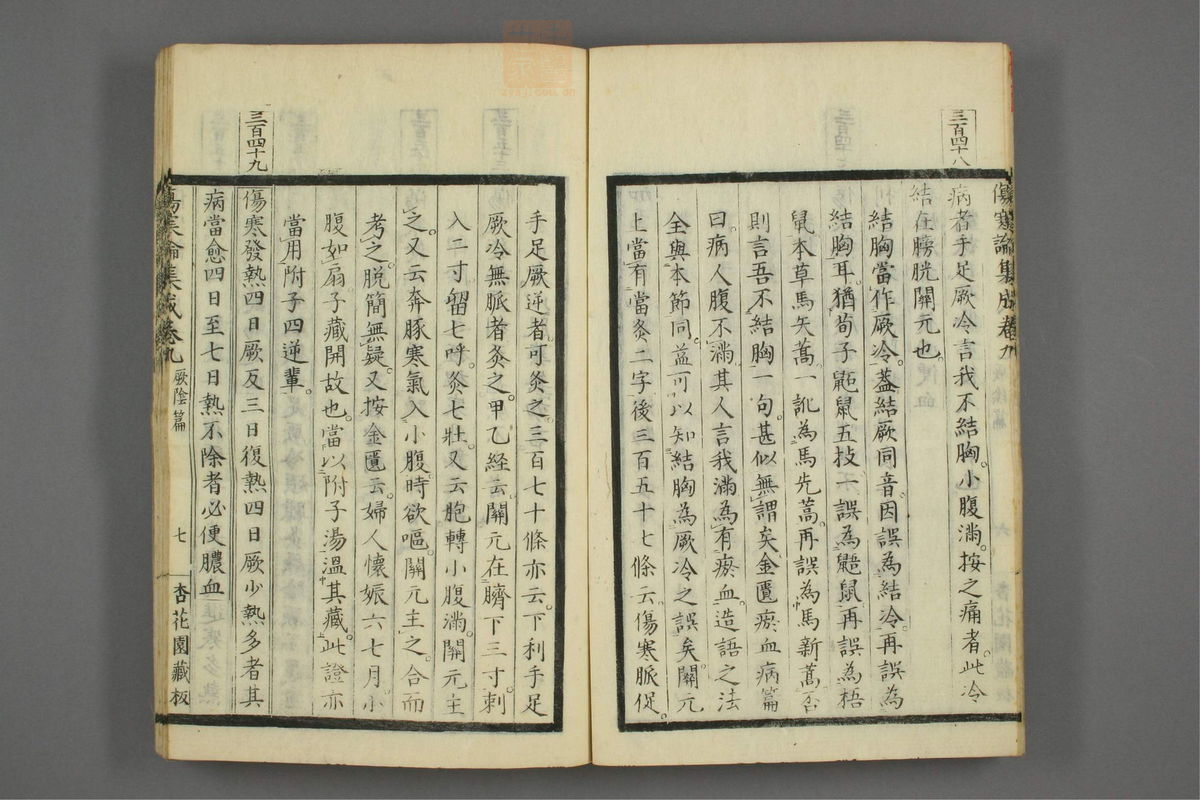 傷寒論集成卷九
三百四十八
病者手足厥冷言我不結胸。小腹滿。按之痛者。此冷
結在膀胱關元也。
結胸當作厥冷。蓋結厥同音。因誤為結冷。再誤為
結胸耳。猶荀子鼫鼠五技一誤為鼯鼠再誤為梧
鼠本草馬矢蒿一訛為馬先蒿。再誤為馬新蒿。否
則言吾不結胸一句。甚似無謂矣金匱瘀血病篇
曰。病人腹不滿。其人言我滿。為有瘀血。造語之法
全與本節同。益可以知結胸為厥冷之誤矣。關元
上當有當灸二字後三百五十七條云。傷寒脈促。
手足厥逆者。可灸之。三百七十條亦云。下利手足
厥冷無脈者灸之。甲乙経云。關元在臍下三寸。刺
入二寸。留七呼。灸七壯。又云胞轉小腹滿。關元主
之。又云奔豚寒氣入小腹時欲嘔。關元主之。合而
考之。脫簡無疑。又按金匱云。婦人懷娠六七月。小
腹如扇。子藏開故也。當以附子湯溫其藏。此證亦
當用附子四逆輩。
三百四十九
傷寒發熱四日厥反三日復熱四日厥少熱多者其
病當愈四日至七日熱不除者必便膿血
傷寒論集成卷九 厥陰篇 七 杏花園藏板